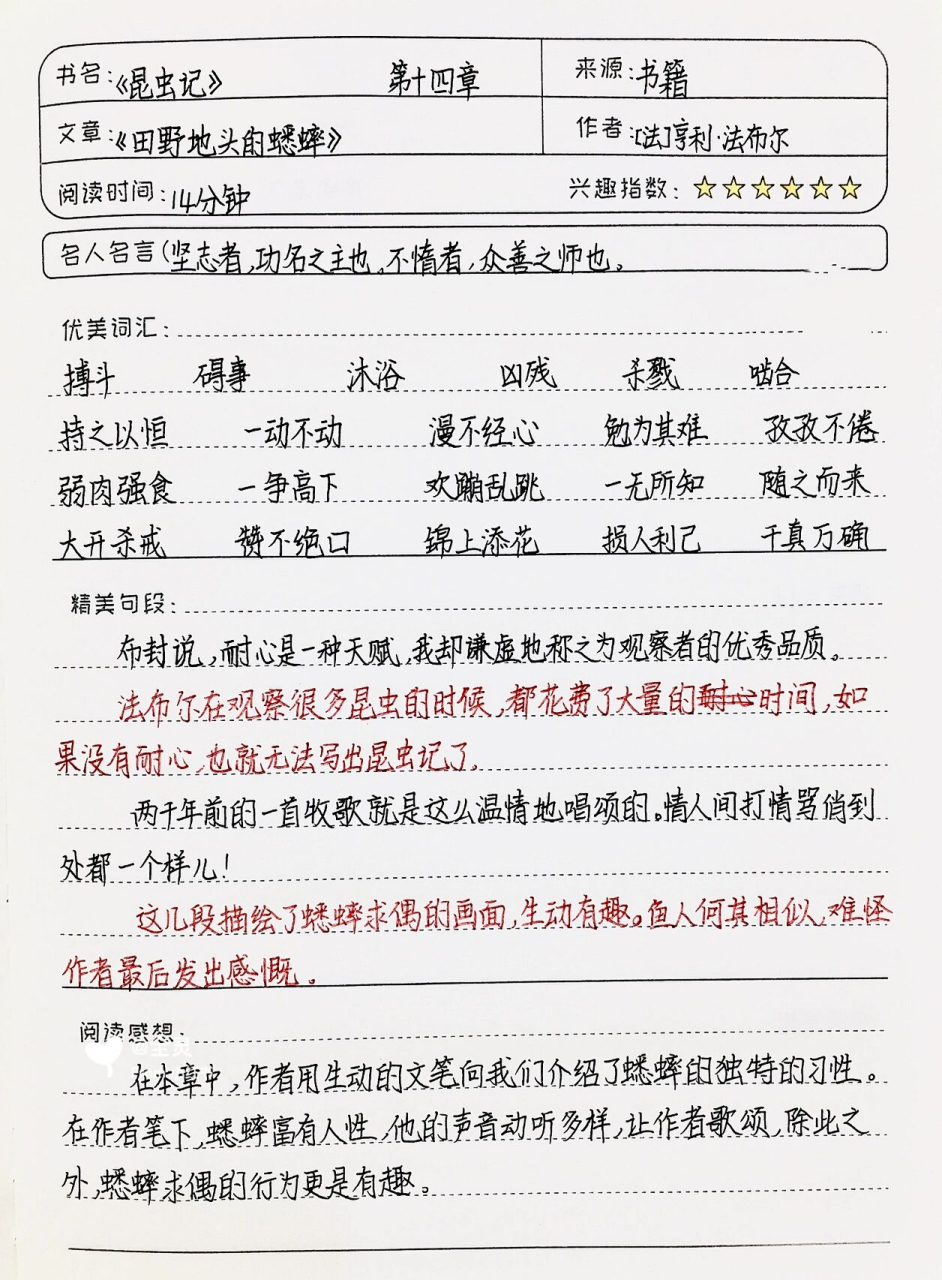 书名:《昆虫记》 第十四章 来源:书籍
文章:《田野地头的蟋蟀》 作者:[法]亨利·法布尔
阅读时间:14分钟 兴趣指数:☆☆☆☆☆☆
名人名言(坚志者,功名之主也。不惰者,众善之师也。
优美词汇:
搏斗 碍事 沐浴 凶残 杀戮 啮合
持之以恒 一动不动 漫不经心 勉为其难 孜孜不倦
弱肉强食 一争高下 欢蹦乱跳 一无所知 随之而来
大开杀戒 赞不绝口 锦上添花 损人利己 千真万确
精美句段:
布封说,耐心是一种天赋,我却谦虚地称之为观察者的优秀品质。
法布尔在观察很多昆虫的时候,都花费了大量的耐心时间,如
果没有耐心,也就无法写出昆虫记了。
两千年前的一首牧歌就是这么温情地唱颂的。情人间打情骂俏到
处都一个样儿!
这几段描绘了蟋蟀求偶的画面,生动有趣。鱼人何其相似,难怪
作者最后发出感慨。
阅读感想:
在本章中,作者用生动的文笔向我们介绍了蟋蟀的独特的习性。
在作者笔下,蟋蟀富有人性,他的声音动听多样,让作者歌颂,除此之
外,蟋蟀求偶的行为更是有趣。